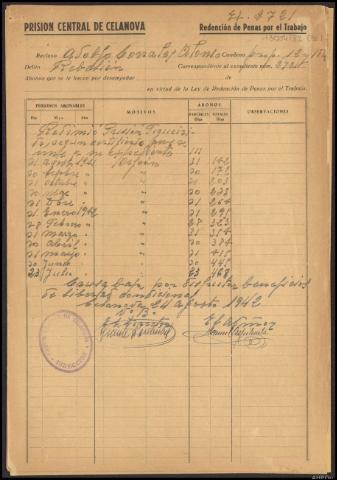 El. 9721
PRISION CENTRAL DE CELANOVA
Redención de Penas por el Trabajo
Recluso Adolfo Gonzalez Condena
Delito Rebelión Correspondiente al expediente núm.
Abonos que se le hacen por desempeñar de
en virtud de la Ley de Redención de Penas por el Trabajo.
PERIODOS ABONABLES MOTIVOS ABONOS OBSERVACIONES
Día Mes Año PARCIALES Días TOTALES Días
Redimió Prision Figueirido
to segun certificado que se
une a su expediente 111
31 agosto 1941 31 142
30 " 30 172
31 octubre " 31 203
30 " 30 233
31 Dbre " 31 264
31 Enero 1942 " 31 295
28 Febrero " " 28 323
31 marzo " " 31 354
30 abril " " 30 384
31 mayo " " 31 415
30 Junio " " 30 445
23 Julio " " 23 468
Causa baja por disfrutar beneficios
de libertad condicional
Celanova 24 agosto 1942
Vº Bº
El Director